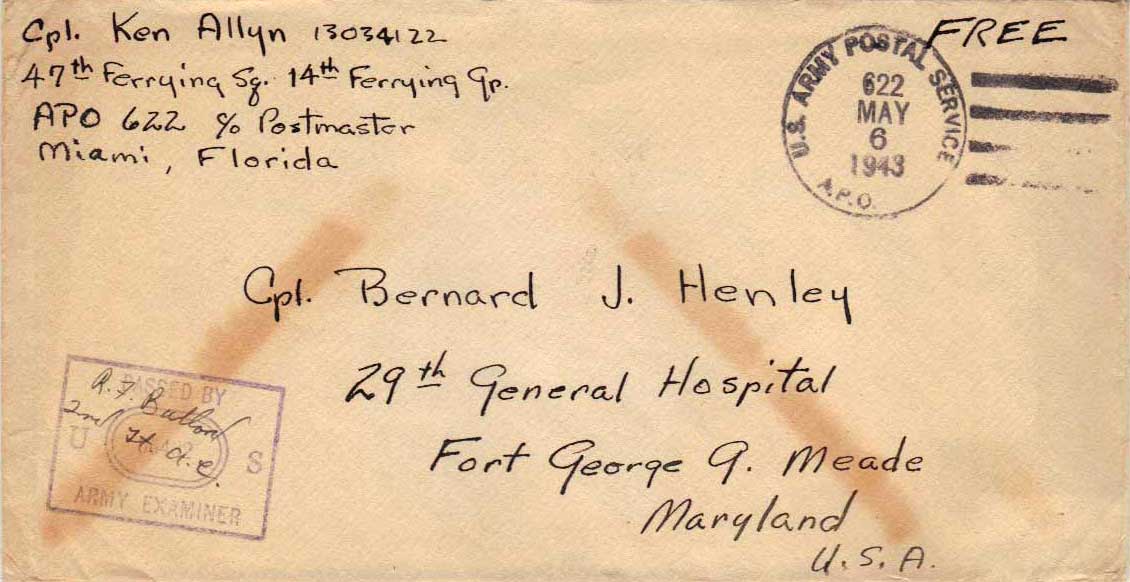 Cpl. Ken Allyn 13034122
47th Ferrying Sq. 14th Ferrying Gp.
APO 622 c/o Postmaster
Miami, Florida
FREE
U.S. ARMY POSTAL SERVICE
622
MAY
6
1943
A.P.O.
Cpl. Bernard J. Henley
29th General Hospital
Fort George G. Meade
Maryland
U.S.A.
PASSED BY
R. F.
2nd Lt. A.C.
U S
ARMY EXAMINER